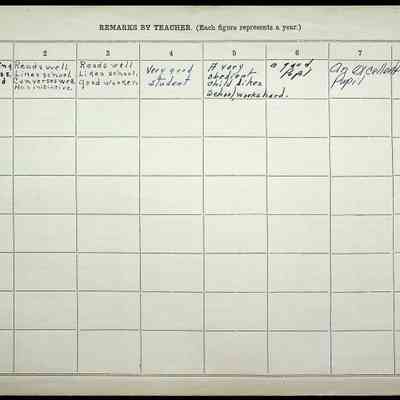 REMARKS BY TEACHER. (Each figure represents a year.)
2 3 4 5 6 7
Reads well.
Likes school.
Converses well.
Has initiative.
Reads well
Likes school.
good worker.
Very good
student
A very
obedient
child. Likes
School, works hard.
a good
Pupil
An excellent
Pupil